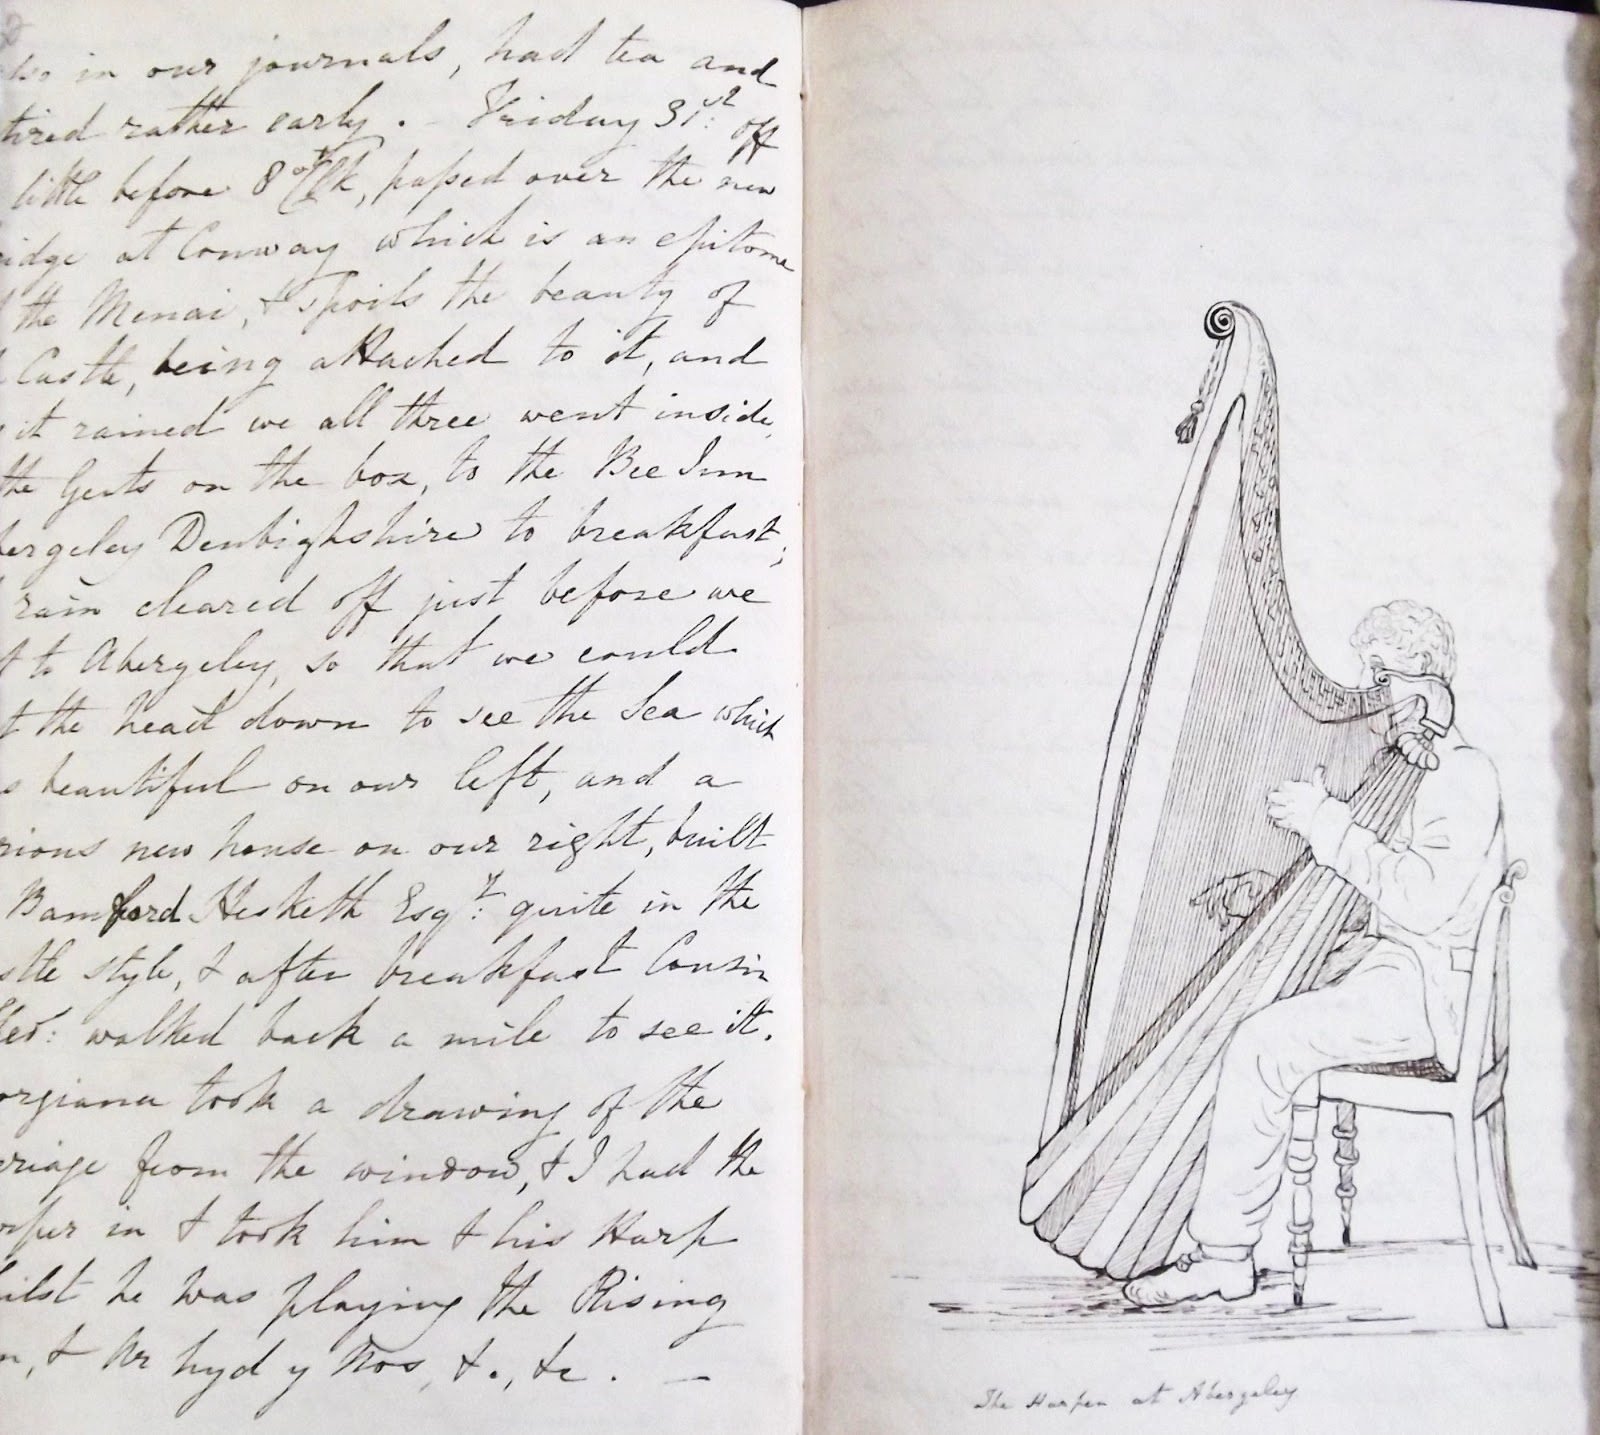 also in our journals, had tea and
tired rather early. - Friday 31st: off
little before 8 o'Clk, passed over the new
idge at Conway which is an epitome
the Menai, & spoils the beauty of
Castle, being attached to it, and
it rained we all three went inside,
the Gents on the box, to the Bee Inn
bergeley Denbighshire to breakfast;
rain cleared off just before we
t to Abergeley, so that we could
t the head down to see the Sea which
s beautiful on our left, and a
rious new house on our right, built
Bamford Hesketh Esqr: quite in the
stle style, & after breakfast Cousin
walked back a mile to see it.
orgiana took a drawing of the
rriage from the window, & I had the
rper in & took him & his Harp
hilst he was playing the Rising
n, & Ar hyd y Nos, &., &c. —
The Harper at Abergeley